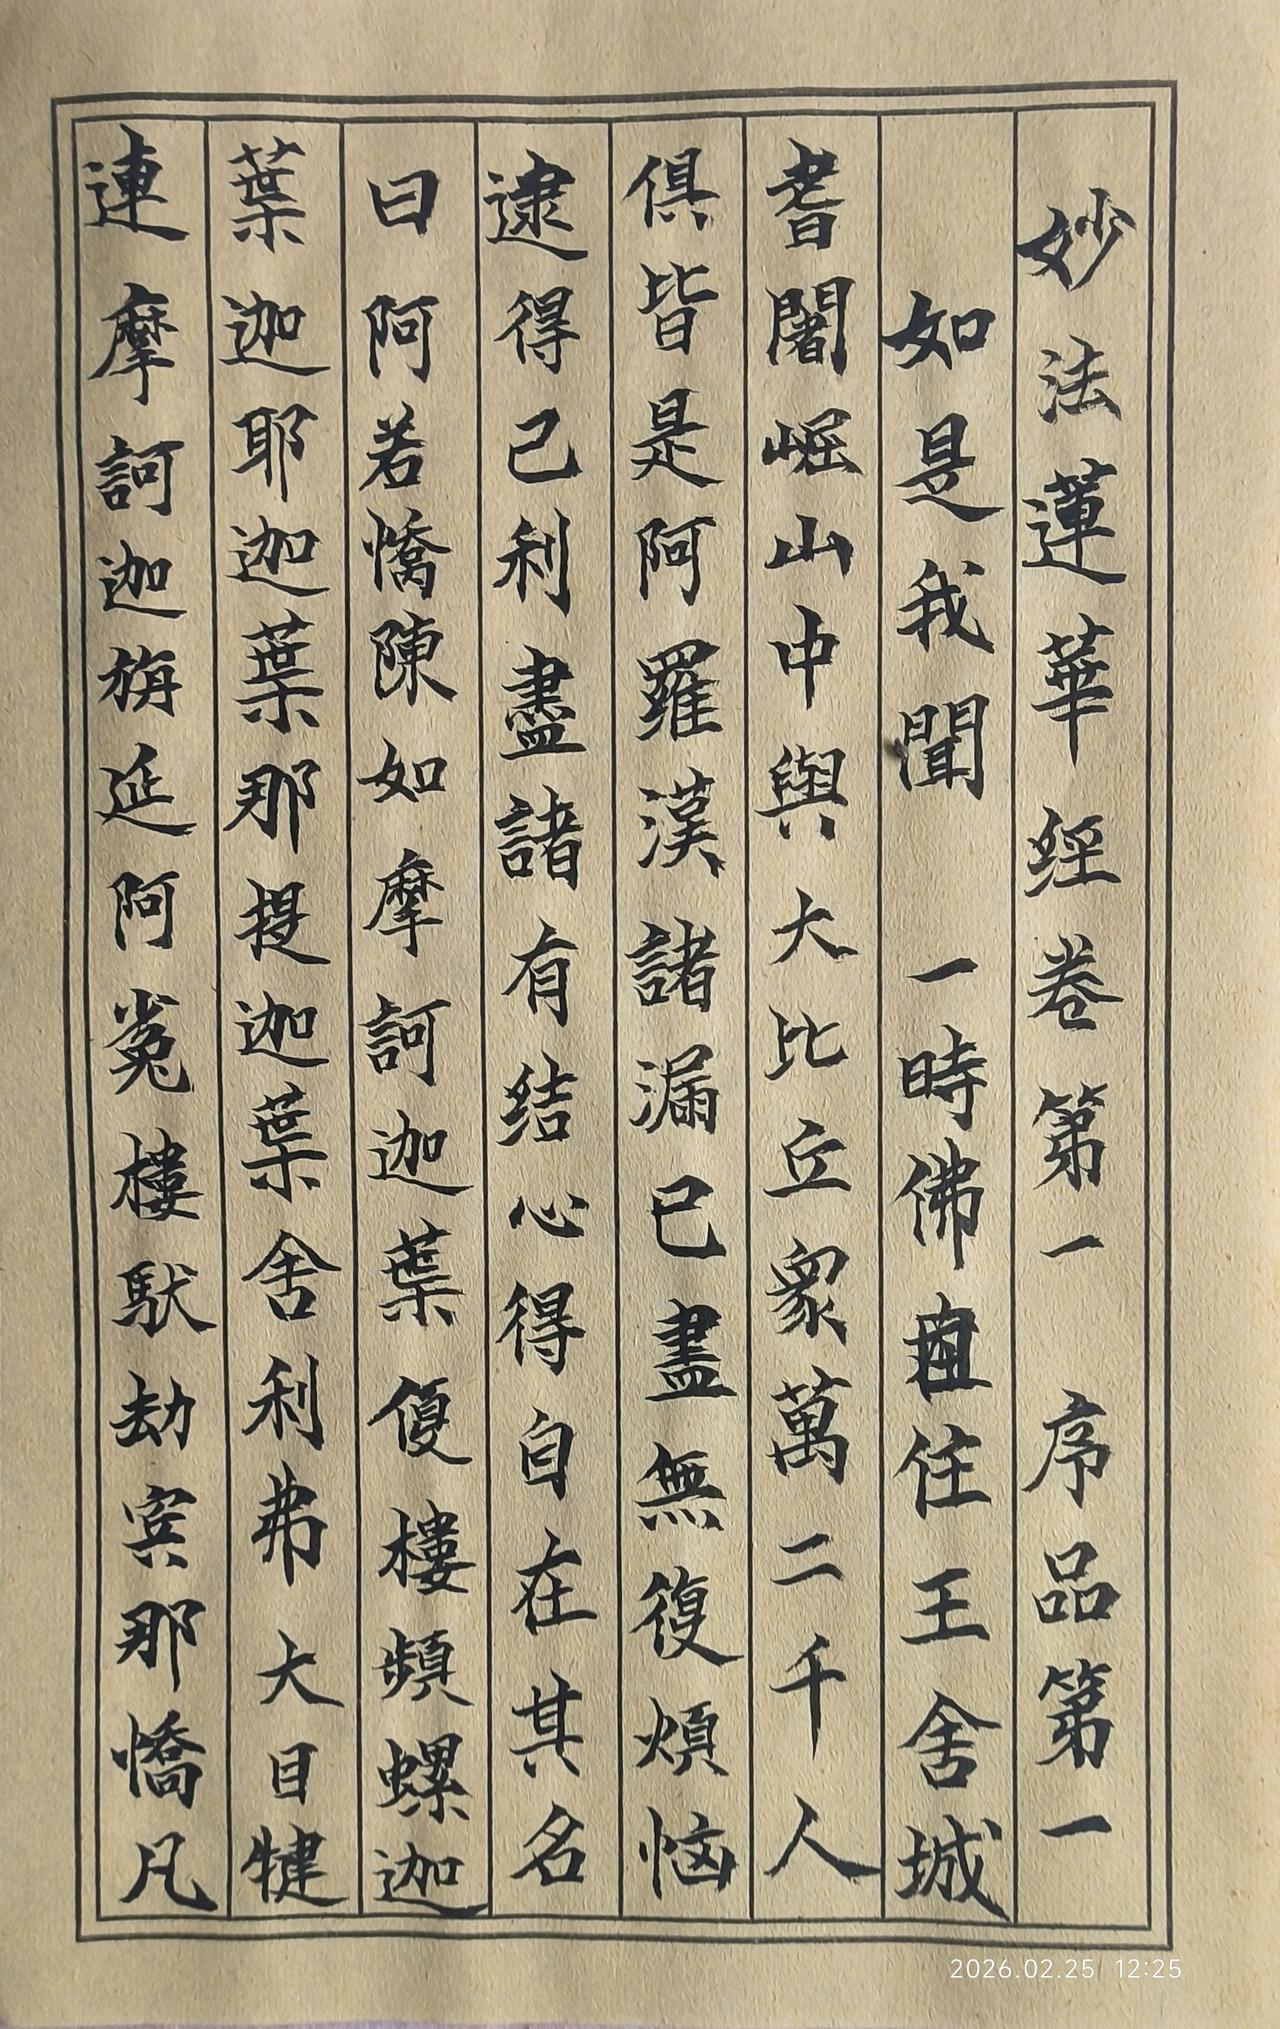 妙法蓮華經卷第一 序品第一
如是我聞 一時佛住王舍城
耆闍崛山中與大比丘眾萬二千人
俱皆是阿羅漢諸漏已盡無復煩恼
逮得己利盡諸有结心得自在其名
曰阿若憍陳如摩訶迦葉優樓頻螺迦
葉迦耶迦葉那提迦葉舍利弗大目犍
連摩訶迦旃延阿㝹樓馱劫宾那憍凡
2026.02.25 12:25